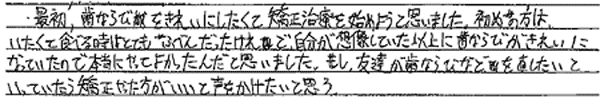 ・最初、歯ならびをきれいにしたくて矯正治療を始めようと思いました。初めの方は、
いたくて食べる時はとても大へんだったけれど、自分が想像していた以上に歯ならびがきれいに
なっていたので本当にやってよかったんだと思いました。もし、友達が歯ならびなどを直したいと
いっていたら矯正やった方がいいって声をかけたいと思う